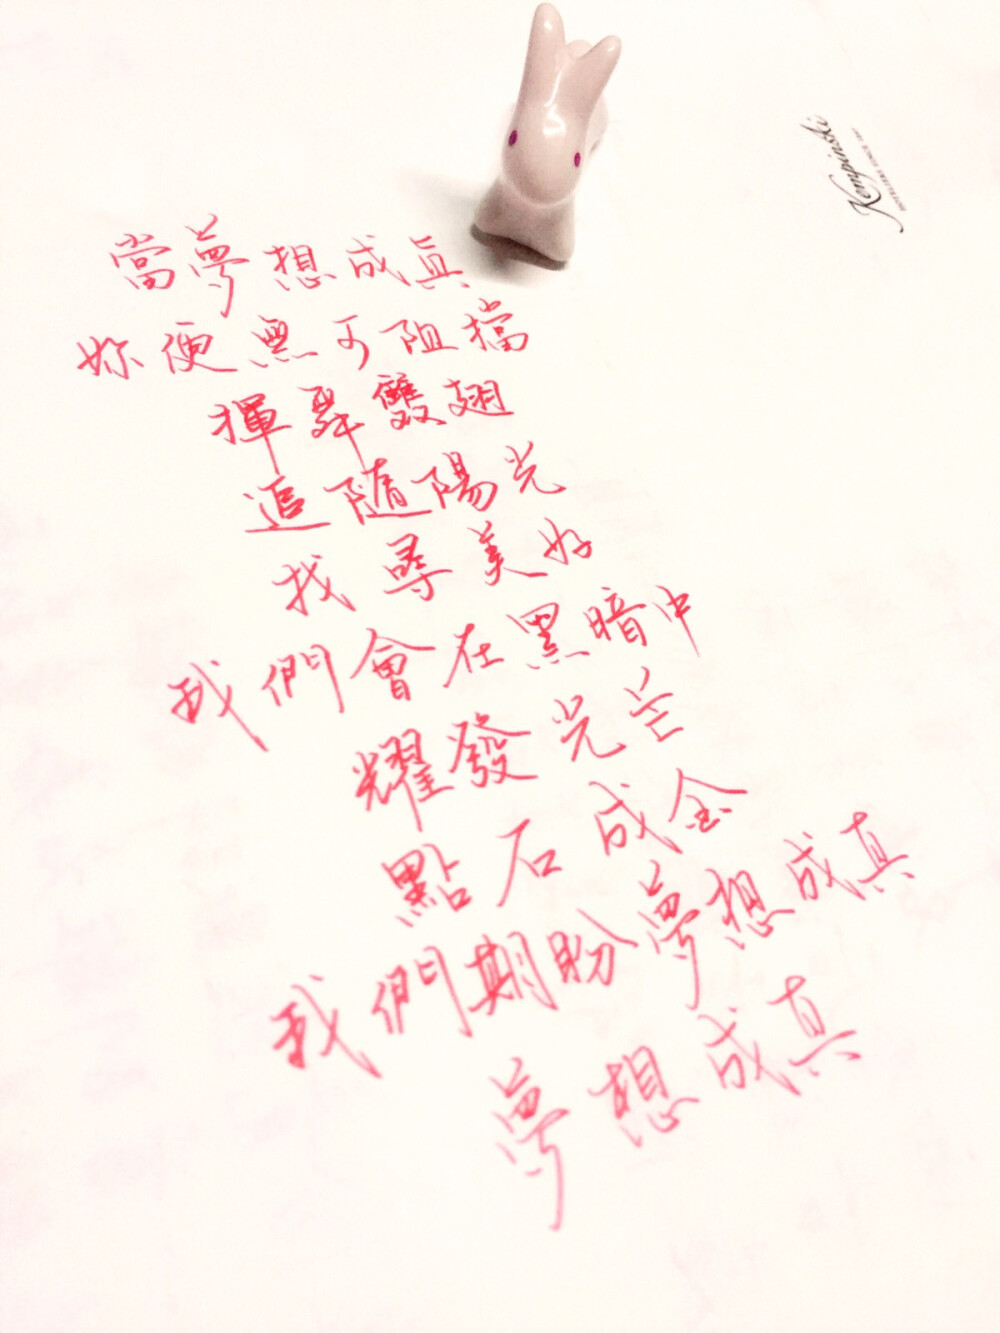 Kempinski
HOTELIERS SINCE 1897
當夢想成真
妳便無可阻擋
揮舞雙翅
追隨陽光
找尋美好
我們會在黑暗中
耀發光芒
點石成金
我們期盼夢想成真
夢想成真